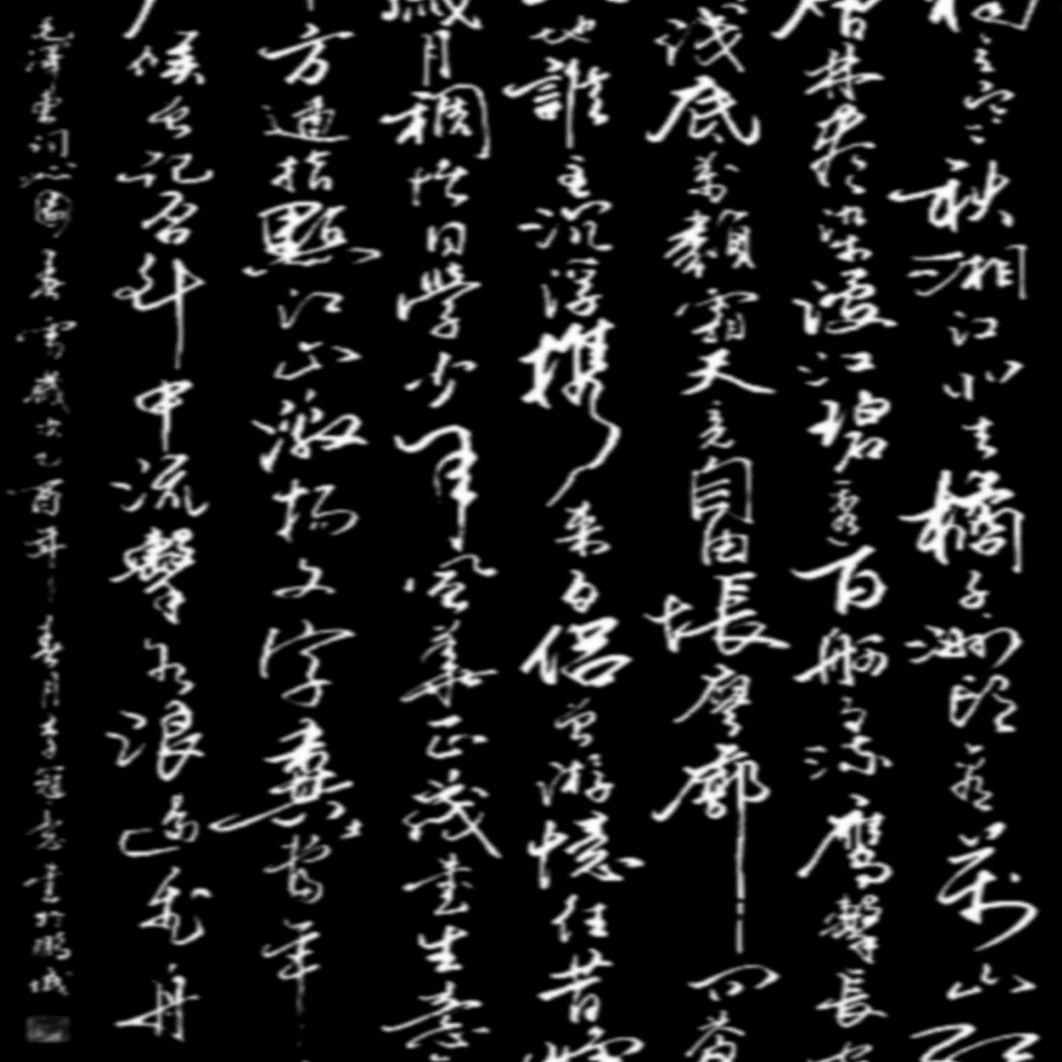 獨立寒秋湘江北去橘子洲頭看萬山
層林盡染漫江碧透百舸爭流鷹擊長
淺底萬類霜天競自由悵廖廓問蒼
地誰主沉浮攜來百侶曾游憶往昔崢
歲月稠恰同學少年風華正茂書生意
方遒指點江山激揚文字糞土當年
候曾記否到中流擊水浪遏飛舟
毛澤東詞沁園春雪歲次乙酉年春月李冠書於鵬城